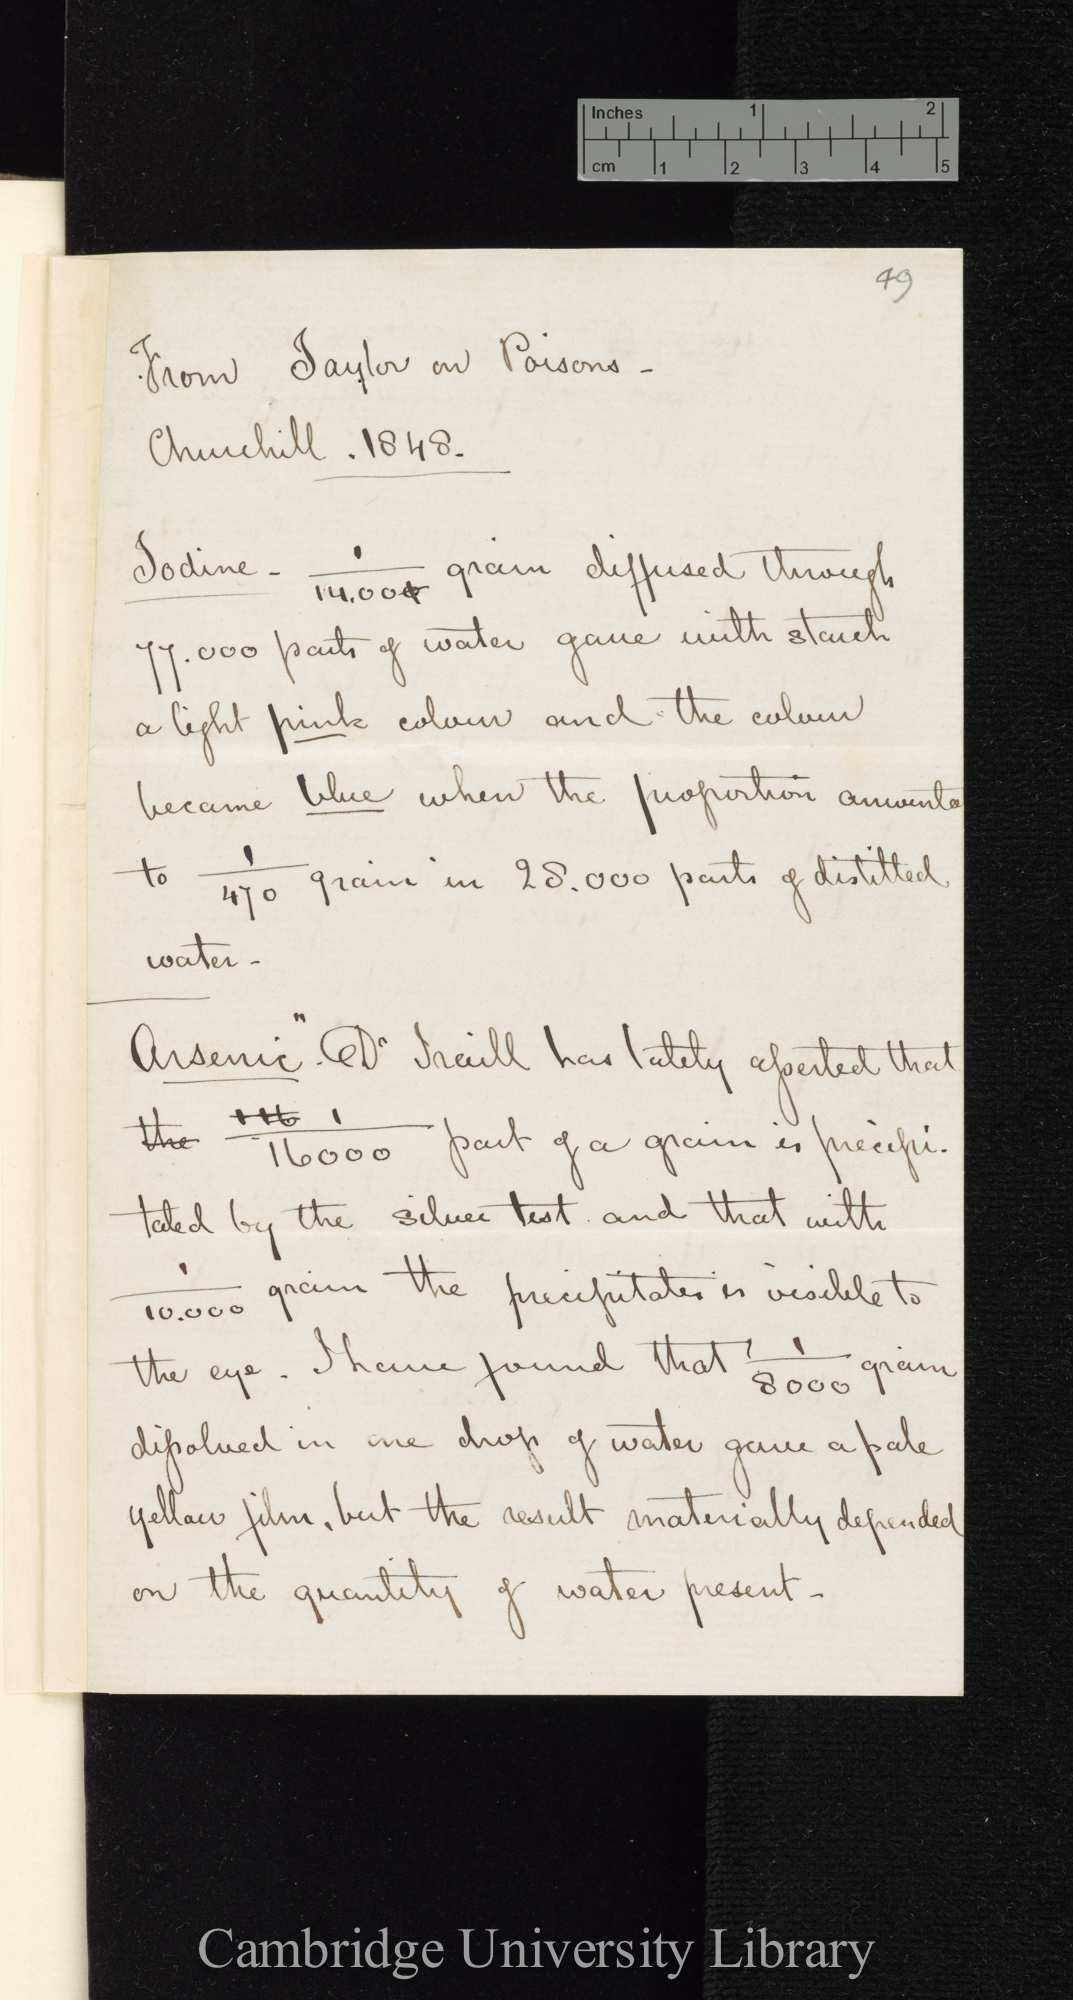 Inches 1 2
cm 1 2 3 4 5
49
From Taylor on Poisons -
Churchill . 1848.
Iodine - 1/14.000 grain diffused through
77.000 parts of water gave with starch
a light pink colour and the colour
became blue when the proportion amounted
to 1/470 grain in 28.000 parts of distilled
water -
Arsenic" . Dr Traill has lately asserted that
the 116 1/16000 part of a grain is precipi-
tated by the silver test and that with
1/10.000 grain the precipitates is visible to
the eye . I have found that 1/8000 grain
dissolved in one drop of water gave a pale
yellow film, but the result materially depended
on the quantity of water present -
Cambridge University Library